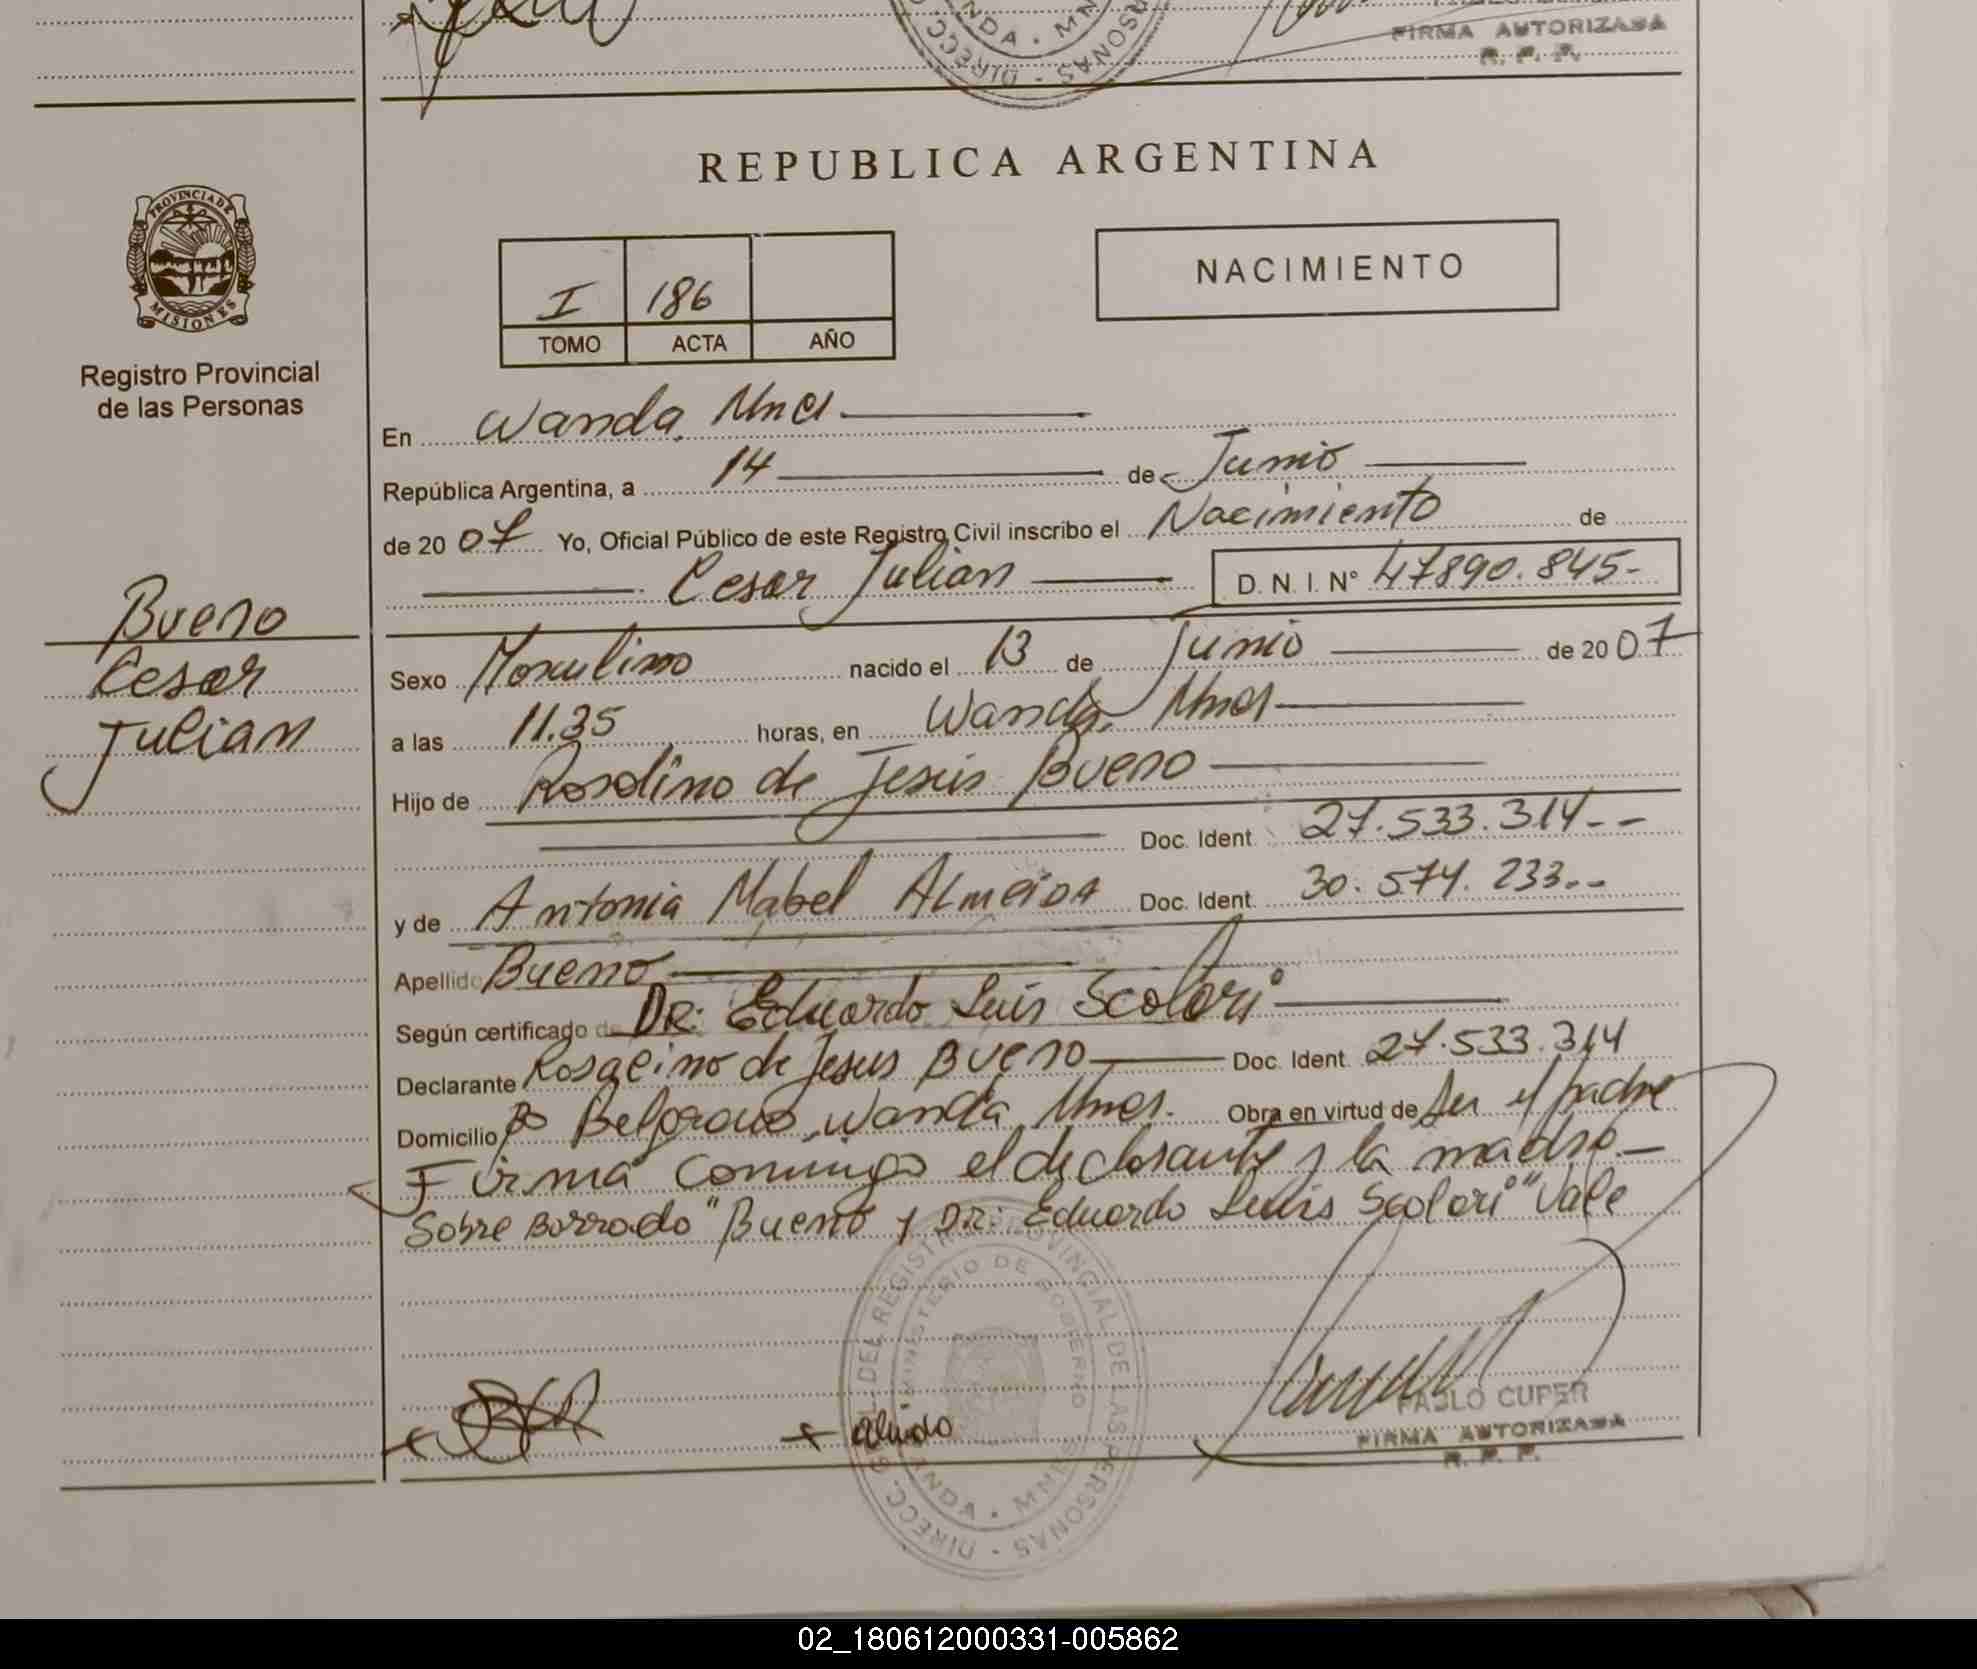 FIRMA AUTORIZADA
R. P. P.
REPUBLICA ARGENTINA
PROVINCIA DE
MISIONES
Registro Provincial
de las Personas
NACIMIENTO
I 186
TOMO ACTA AÑO
En Wanda, Mnes
República Argentina, a 14 de Junio
de 2007 Yo, Oficial Público de este Registro Civil inscribo el Nacimiento de
Cesar Julian D. N. I. N° 47890.845-
Bueno
Cesar
Julian
Sexo Masculino nacido el 13 de Junio de 2007
a las 11.35 horas, en Wanda, Mnes
Hijo de Rosalino de Jesús Bueno
Doc. Ident. 27.533.314--
y de Antonia Mabel Almeida Doc. Ident. 30.574.233--
Apellido Bueno
Según certificado de DR: Eduardo Luis Scolari
Declarante Rosalino de Jesus Bueno Doc. Ident. 27.533.314
Domicilio Bo Belgrano, Wanda Mnes. Obra en virtud de Ser el padre
Firma conmigo el declarante y la madre
Sobre Borrado "Bueno y DR: Eduardo Luis Scolari" Vale
DIRECC. GRAL DEL REGISTRO PROVINCIAL DE LAS PERSONAS
MINISTERIO DE GOBIERNO
WANDA - MNES
PABLO CUPER
FIRMA AUTORIZADA
R. P. P.
02_180612000331-005862